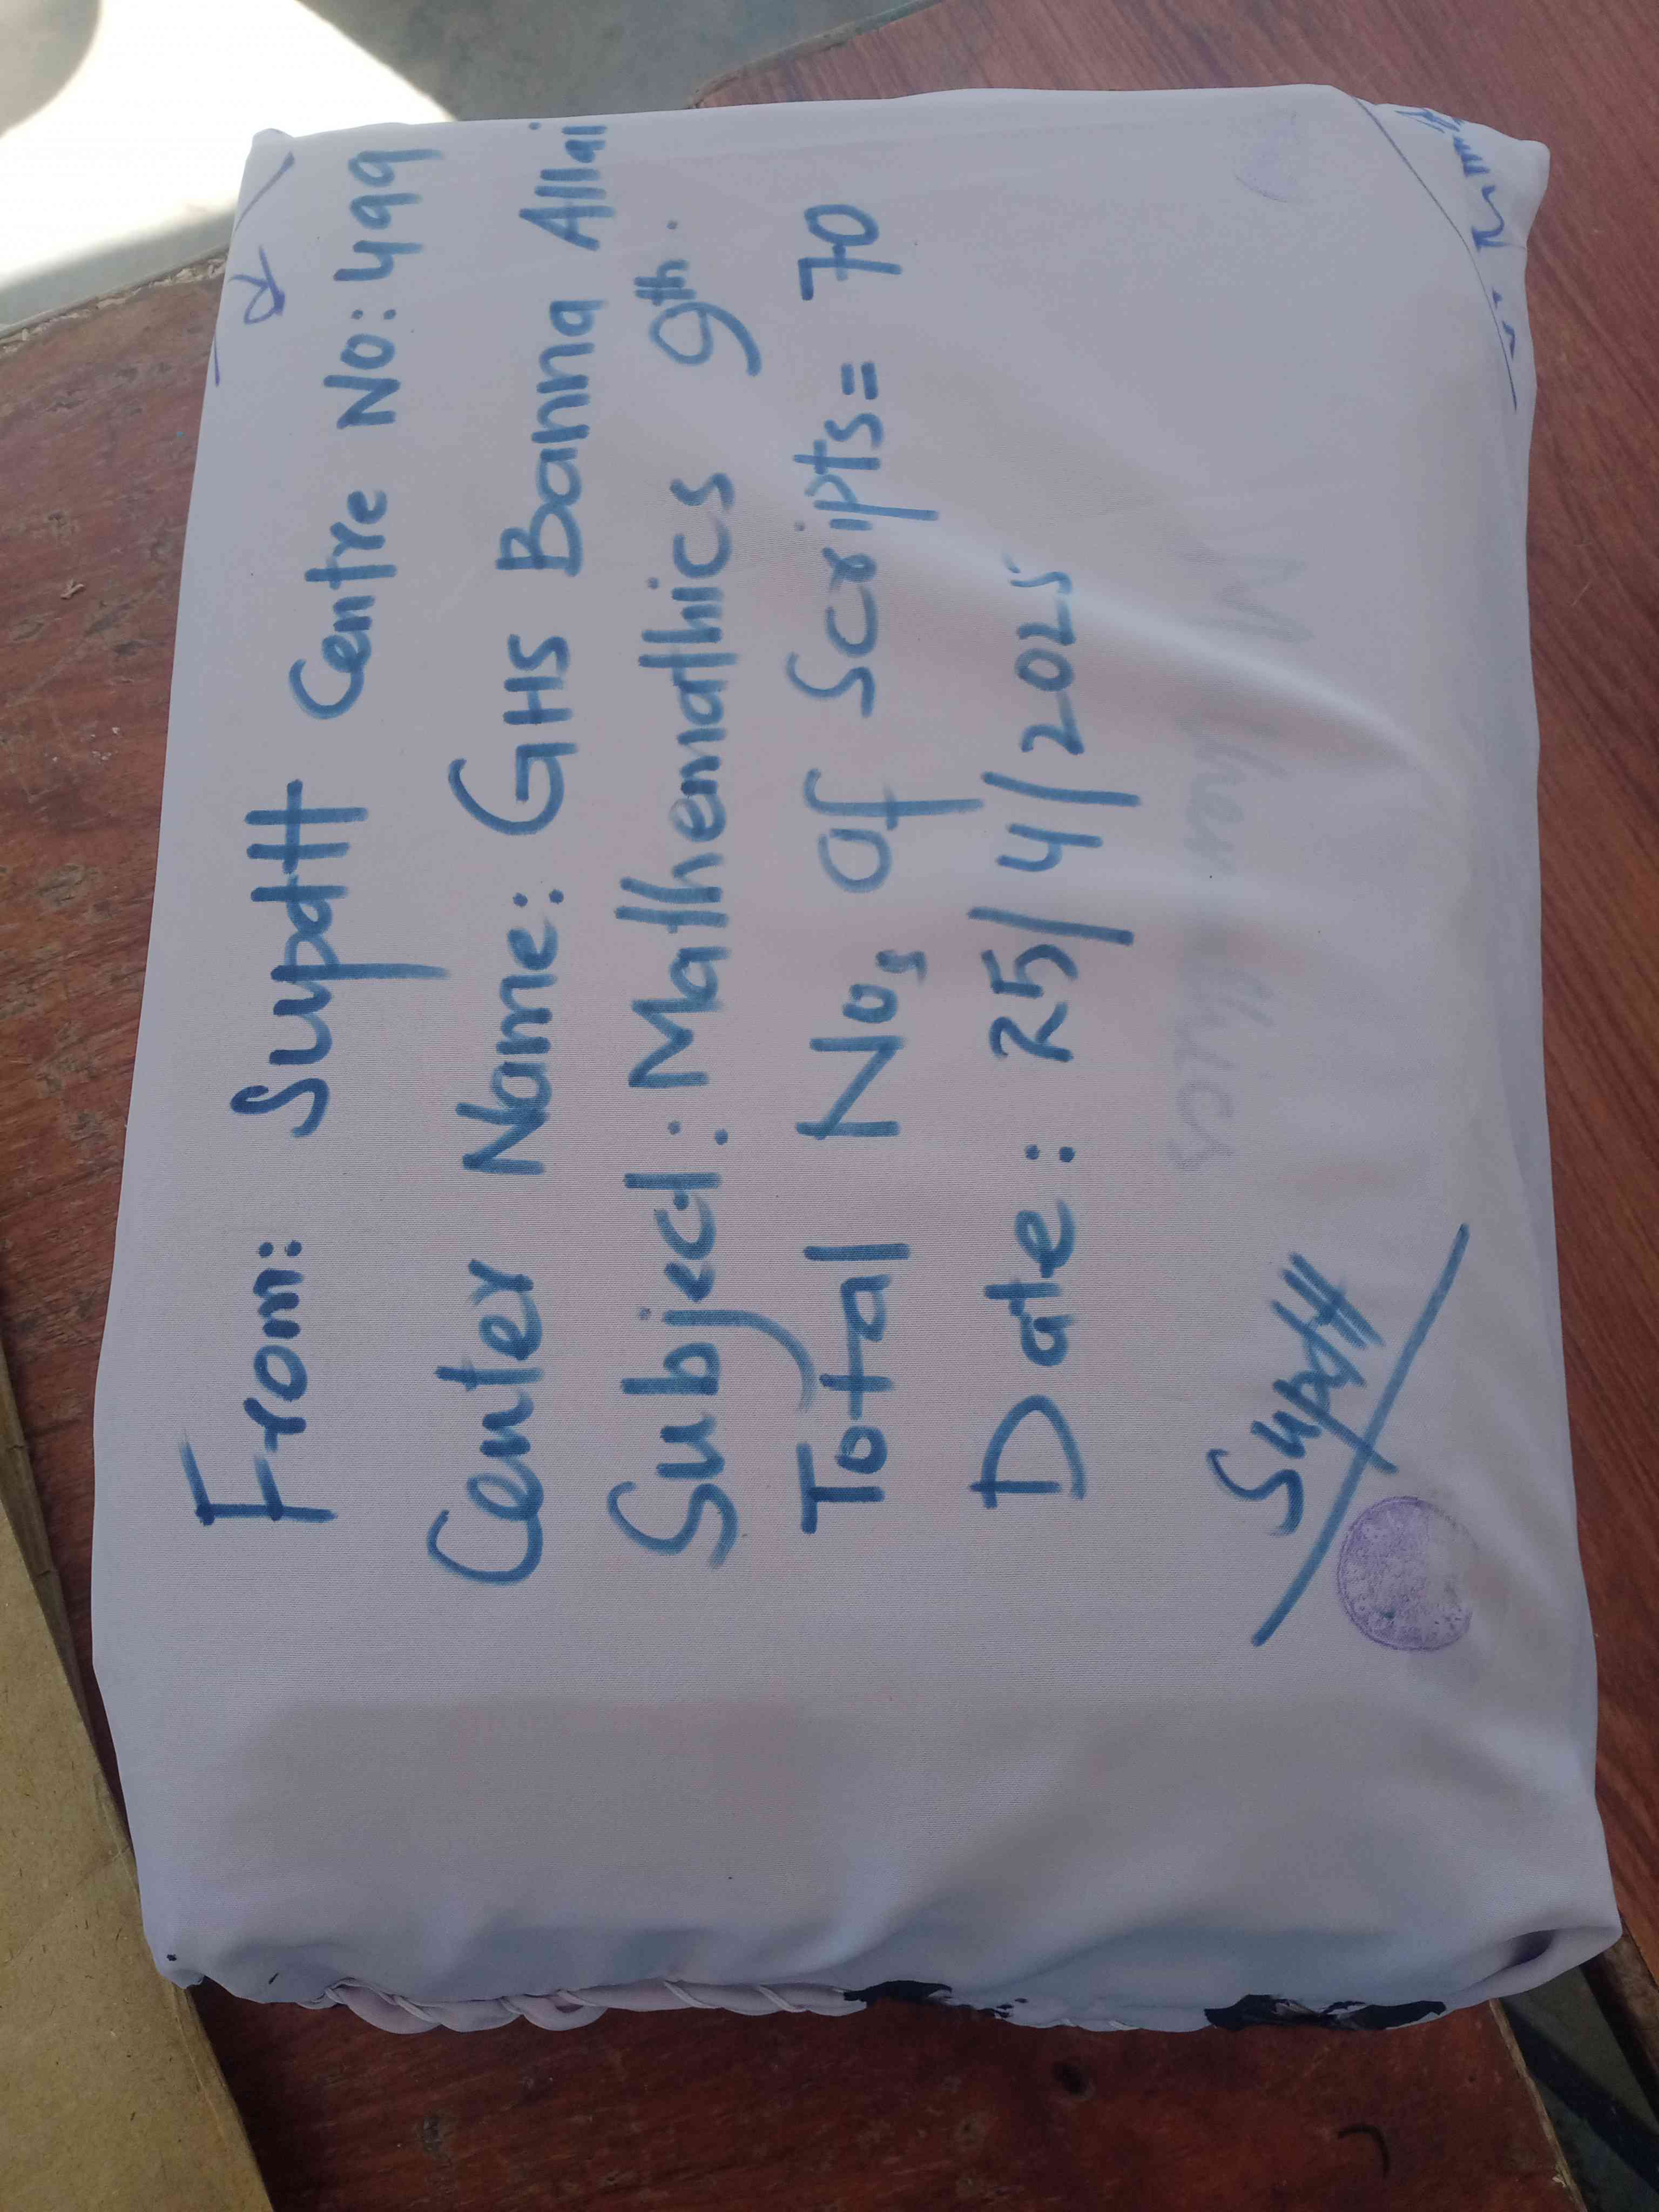 From: Supdtt Centre No: 499
Center Name: GHS Banna Allai
Subject: Mathemathics 9th.
Total Nos of Scripts = 70
Date: 25/4/2025
Supdtt